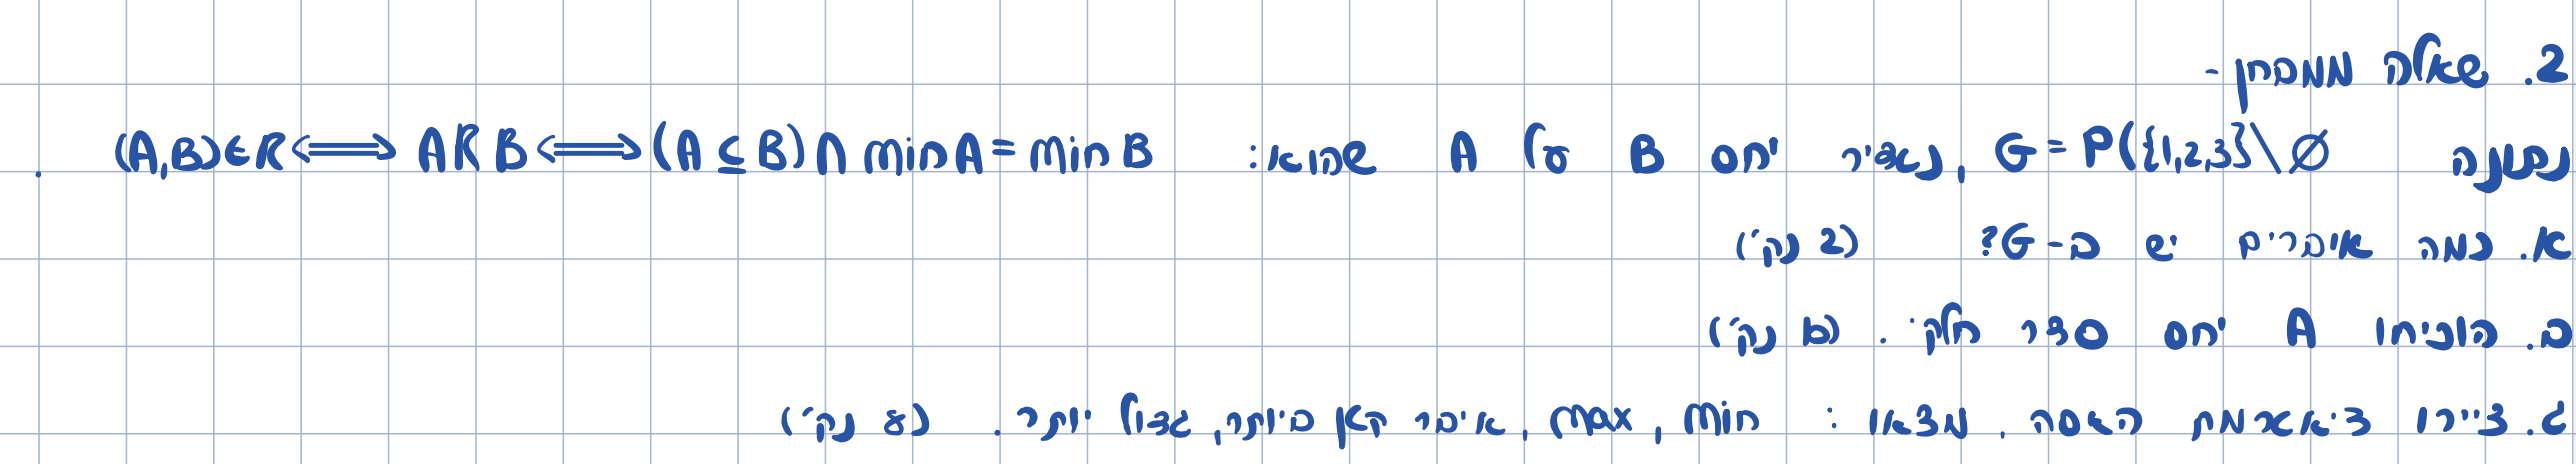 2. שאלה ממבחן -
נתונה G = P({1,2,3}\∅ , נגדיר יחס B על A שהוא: (A,B)∈R⟺ARB⟺(A⊆B)∩minA=minB .
א. כמה איברים יש ב-G? (2 נק')
ב. הוכיחו A יחס סדר חלקי. (10 נק')
ג. ציירו דיאגרמת האסה. מצאו: min, max, איבר קטן ביותר, גדול יותר. (8 נק')